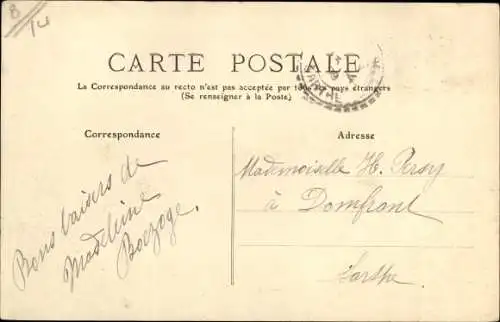 8
14
CARTE POSTALE
La Correspondance au recto n'est pas acceptée par tous les pays étrangers
(Se renseigner à la Poste)
SARTHE
Correspondance
Adresse
Bons baisers de
Madeleine
Mademoiselle H.
à Domfront
Sarthe